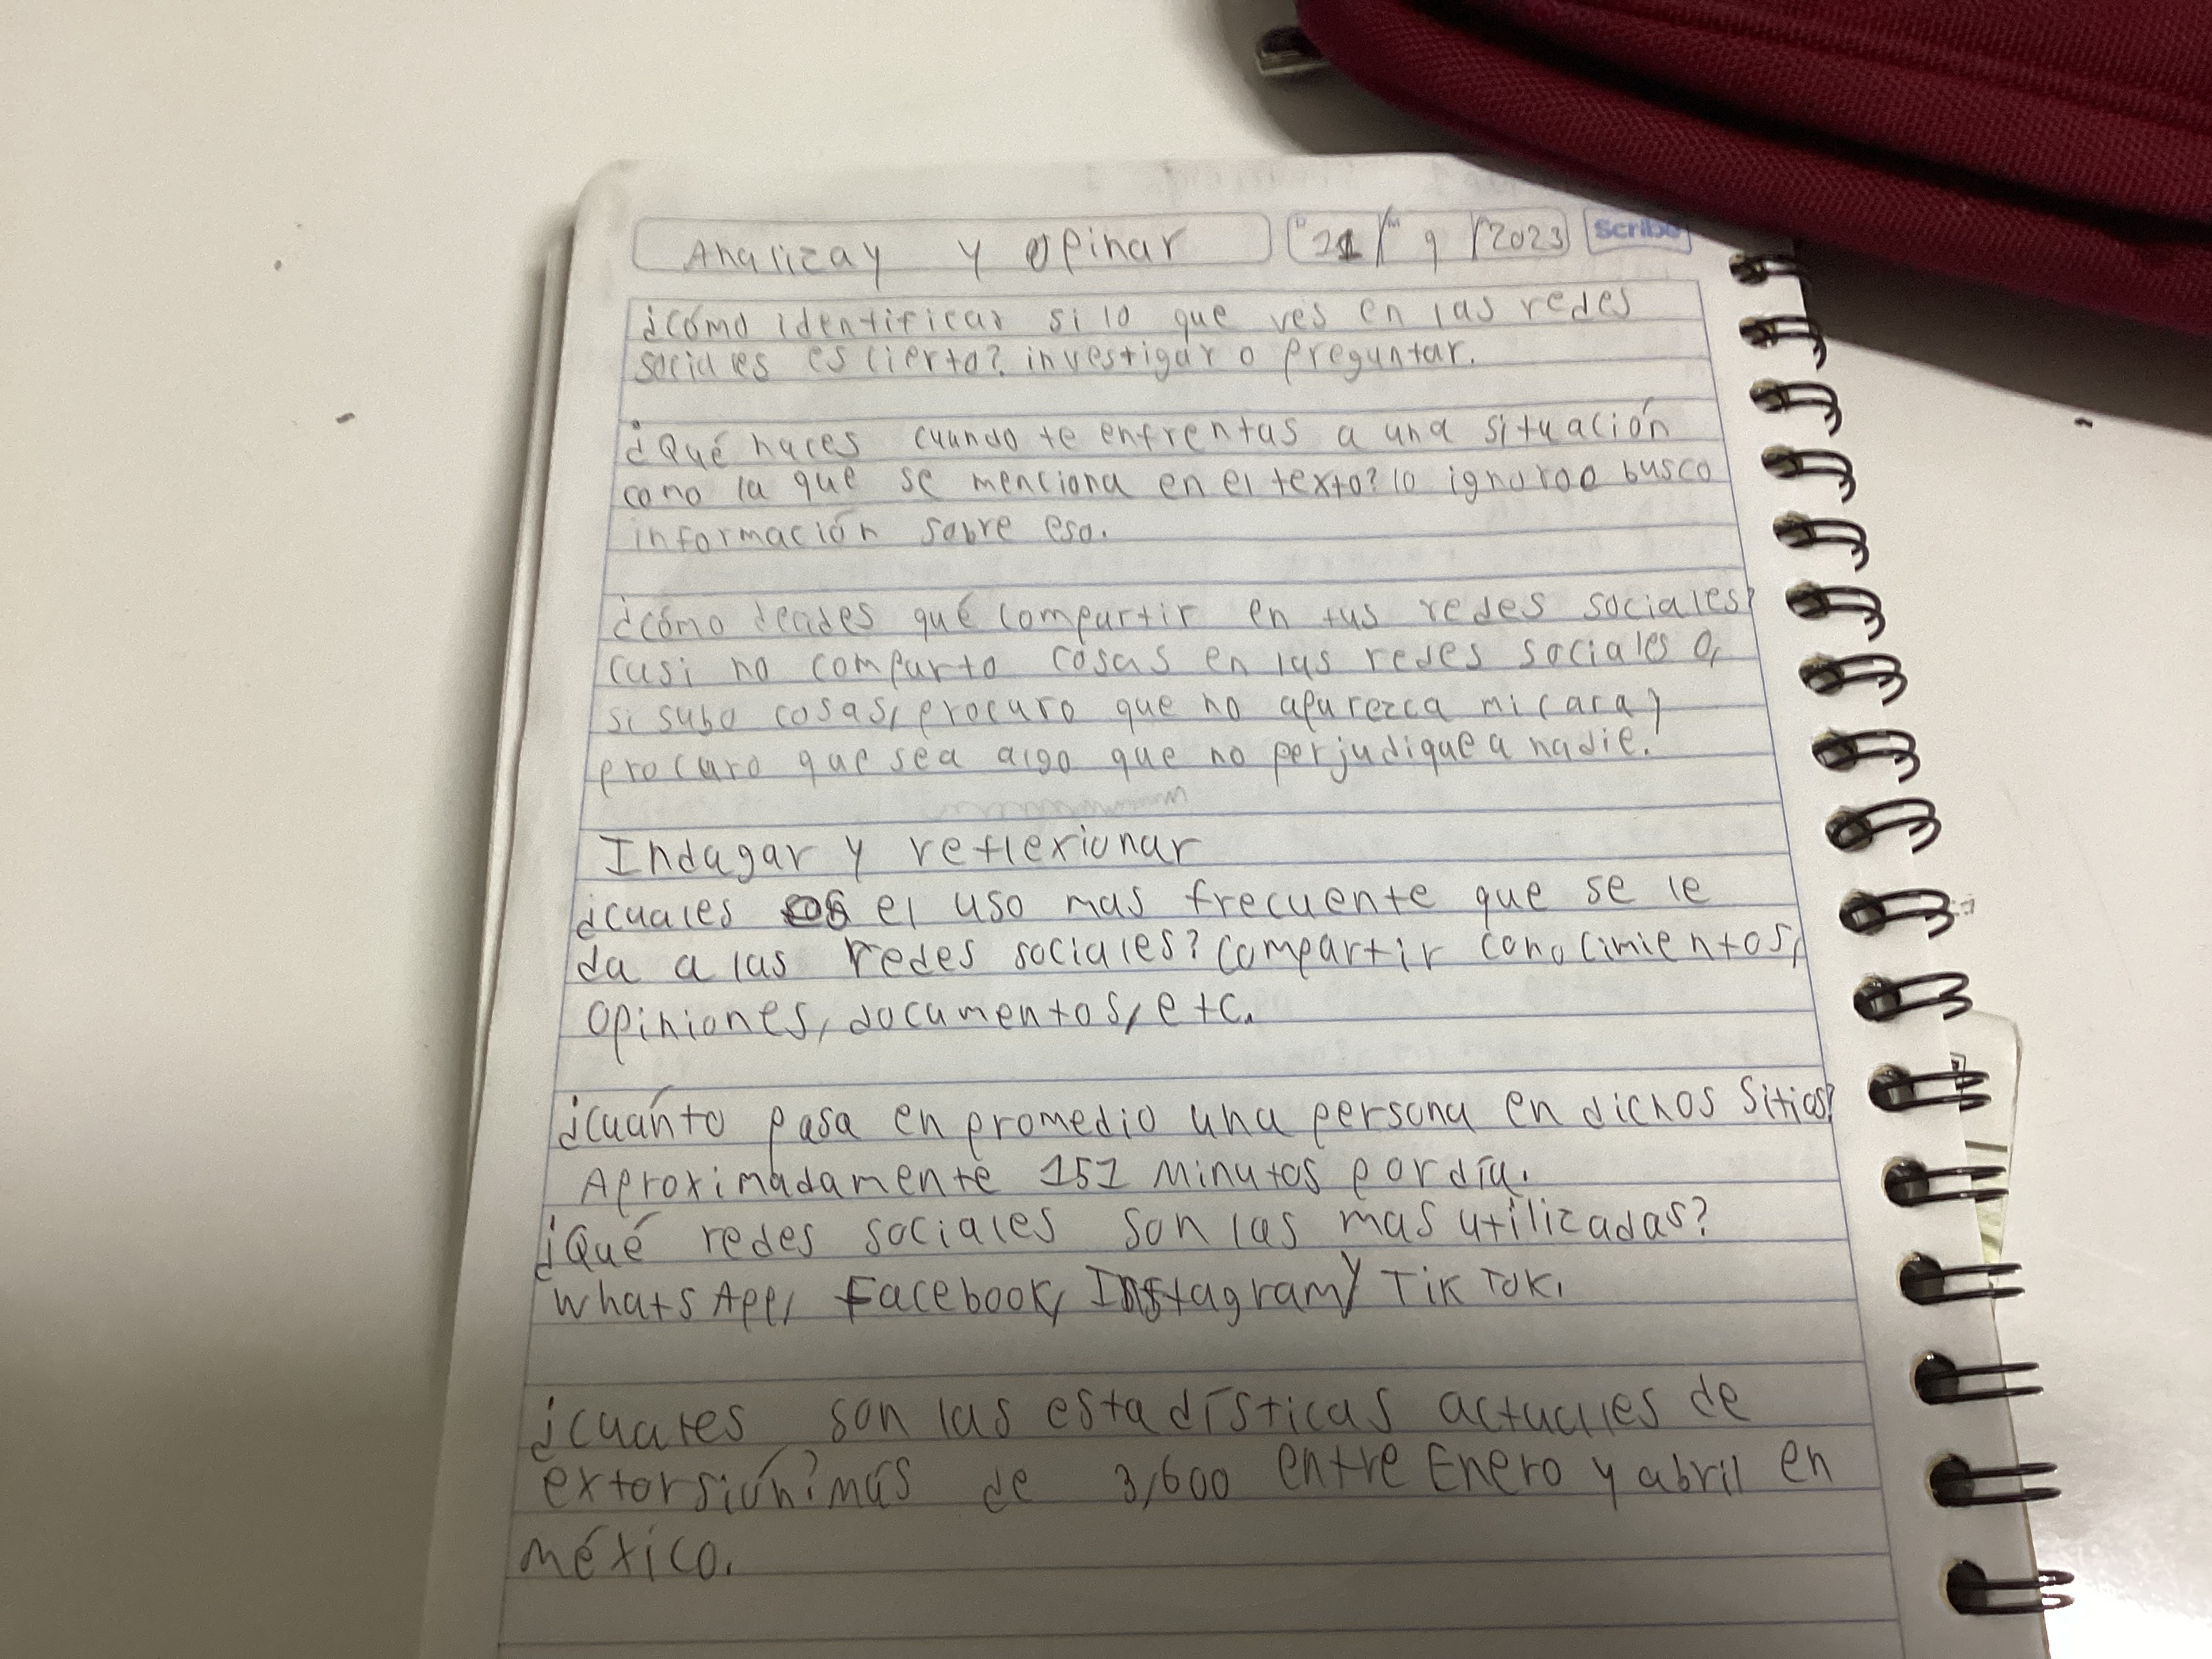 Analizay y opinar 21 / 9 / 2023 Scribe
¿cómo identificar si lo que ves en las redes
sociales es cierto? investigar o preguntar.
¿Qué haces cuando te enfrentas a una situación
como la que se menciona en el texto? lo ignoro o busco
información sobre eso.
¿cómo decides qué compartir en tus redes sociales?
casi no comparto cosas en las redes sociales o,
si subo cosas, procuro que no aparezca mi cara y
procuro que sea algo que no perjudique a nadie.
Indagar y reflexionar
¿cuales el uso mas frecuente que se le
da a las redes sociales? compartir conocimientos,
opiniones, documentos, etc.
¿cuánto pasa en promedio una persona en dichos sitios?
Aproximadamente 151 minutos por día.
¿Qué redes sociales son las mas utilizadas?
WhatsApp, Facebook, Instagram y TikTok.
¿cuales son las estadísticas actuales de
extorsión? más de 3,600 entre Enero y abril en
méxico.